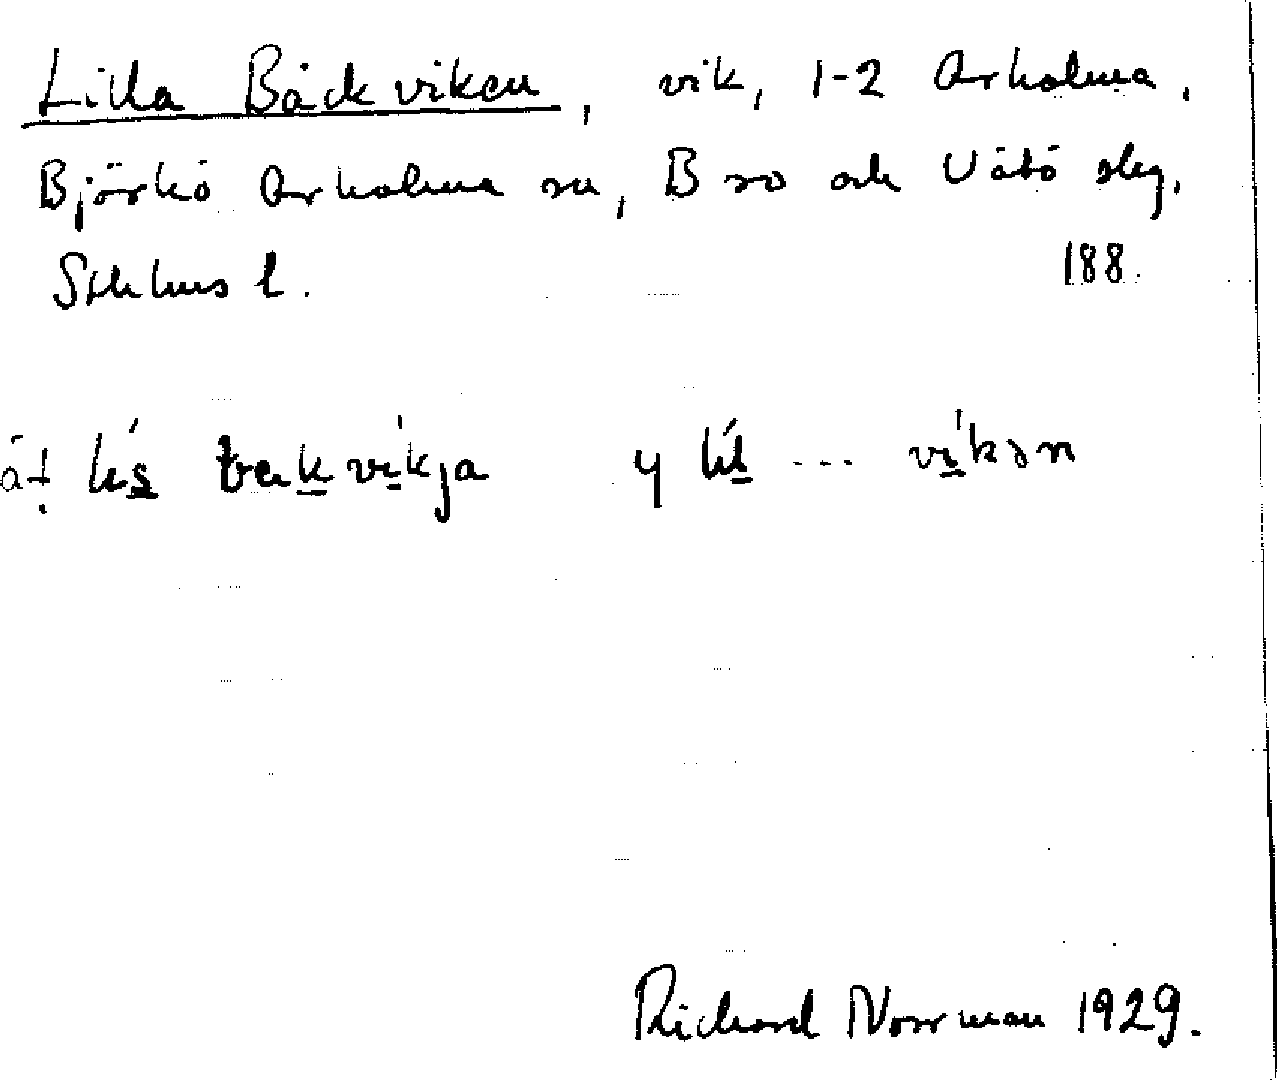 Lilla Bäckviken, vik, 1-2 Arholma,
Björkö Arholma sn, B so och Vätö slg,
Sthlms l. 188.
y lil --- vikən
Richard Norrman 1929.